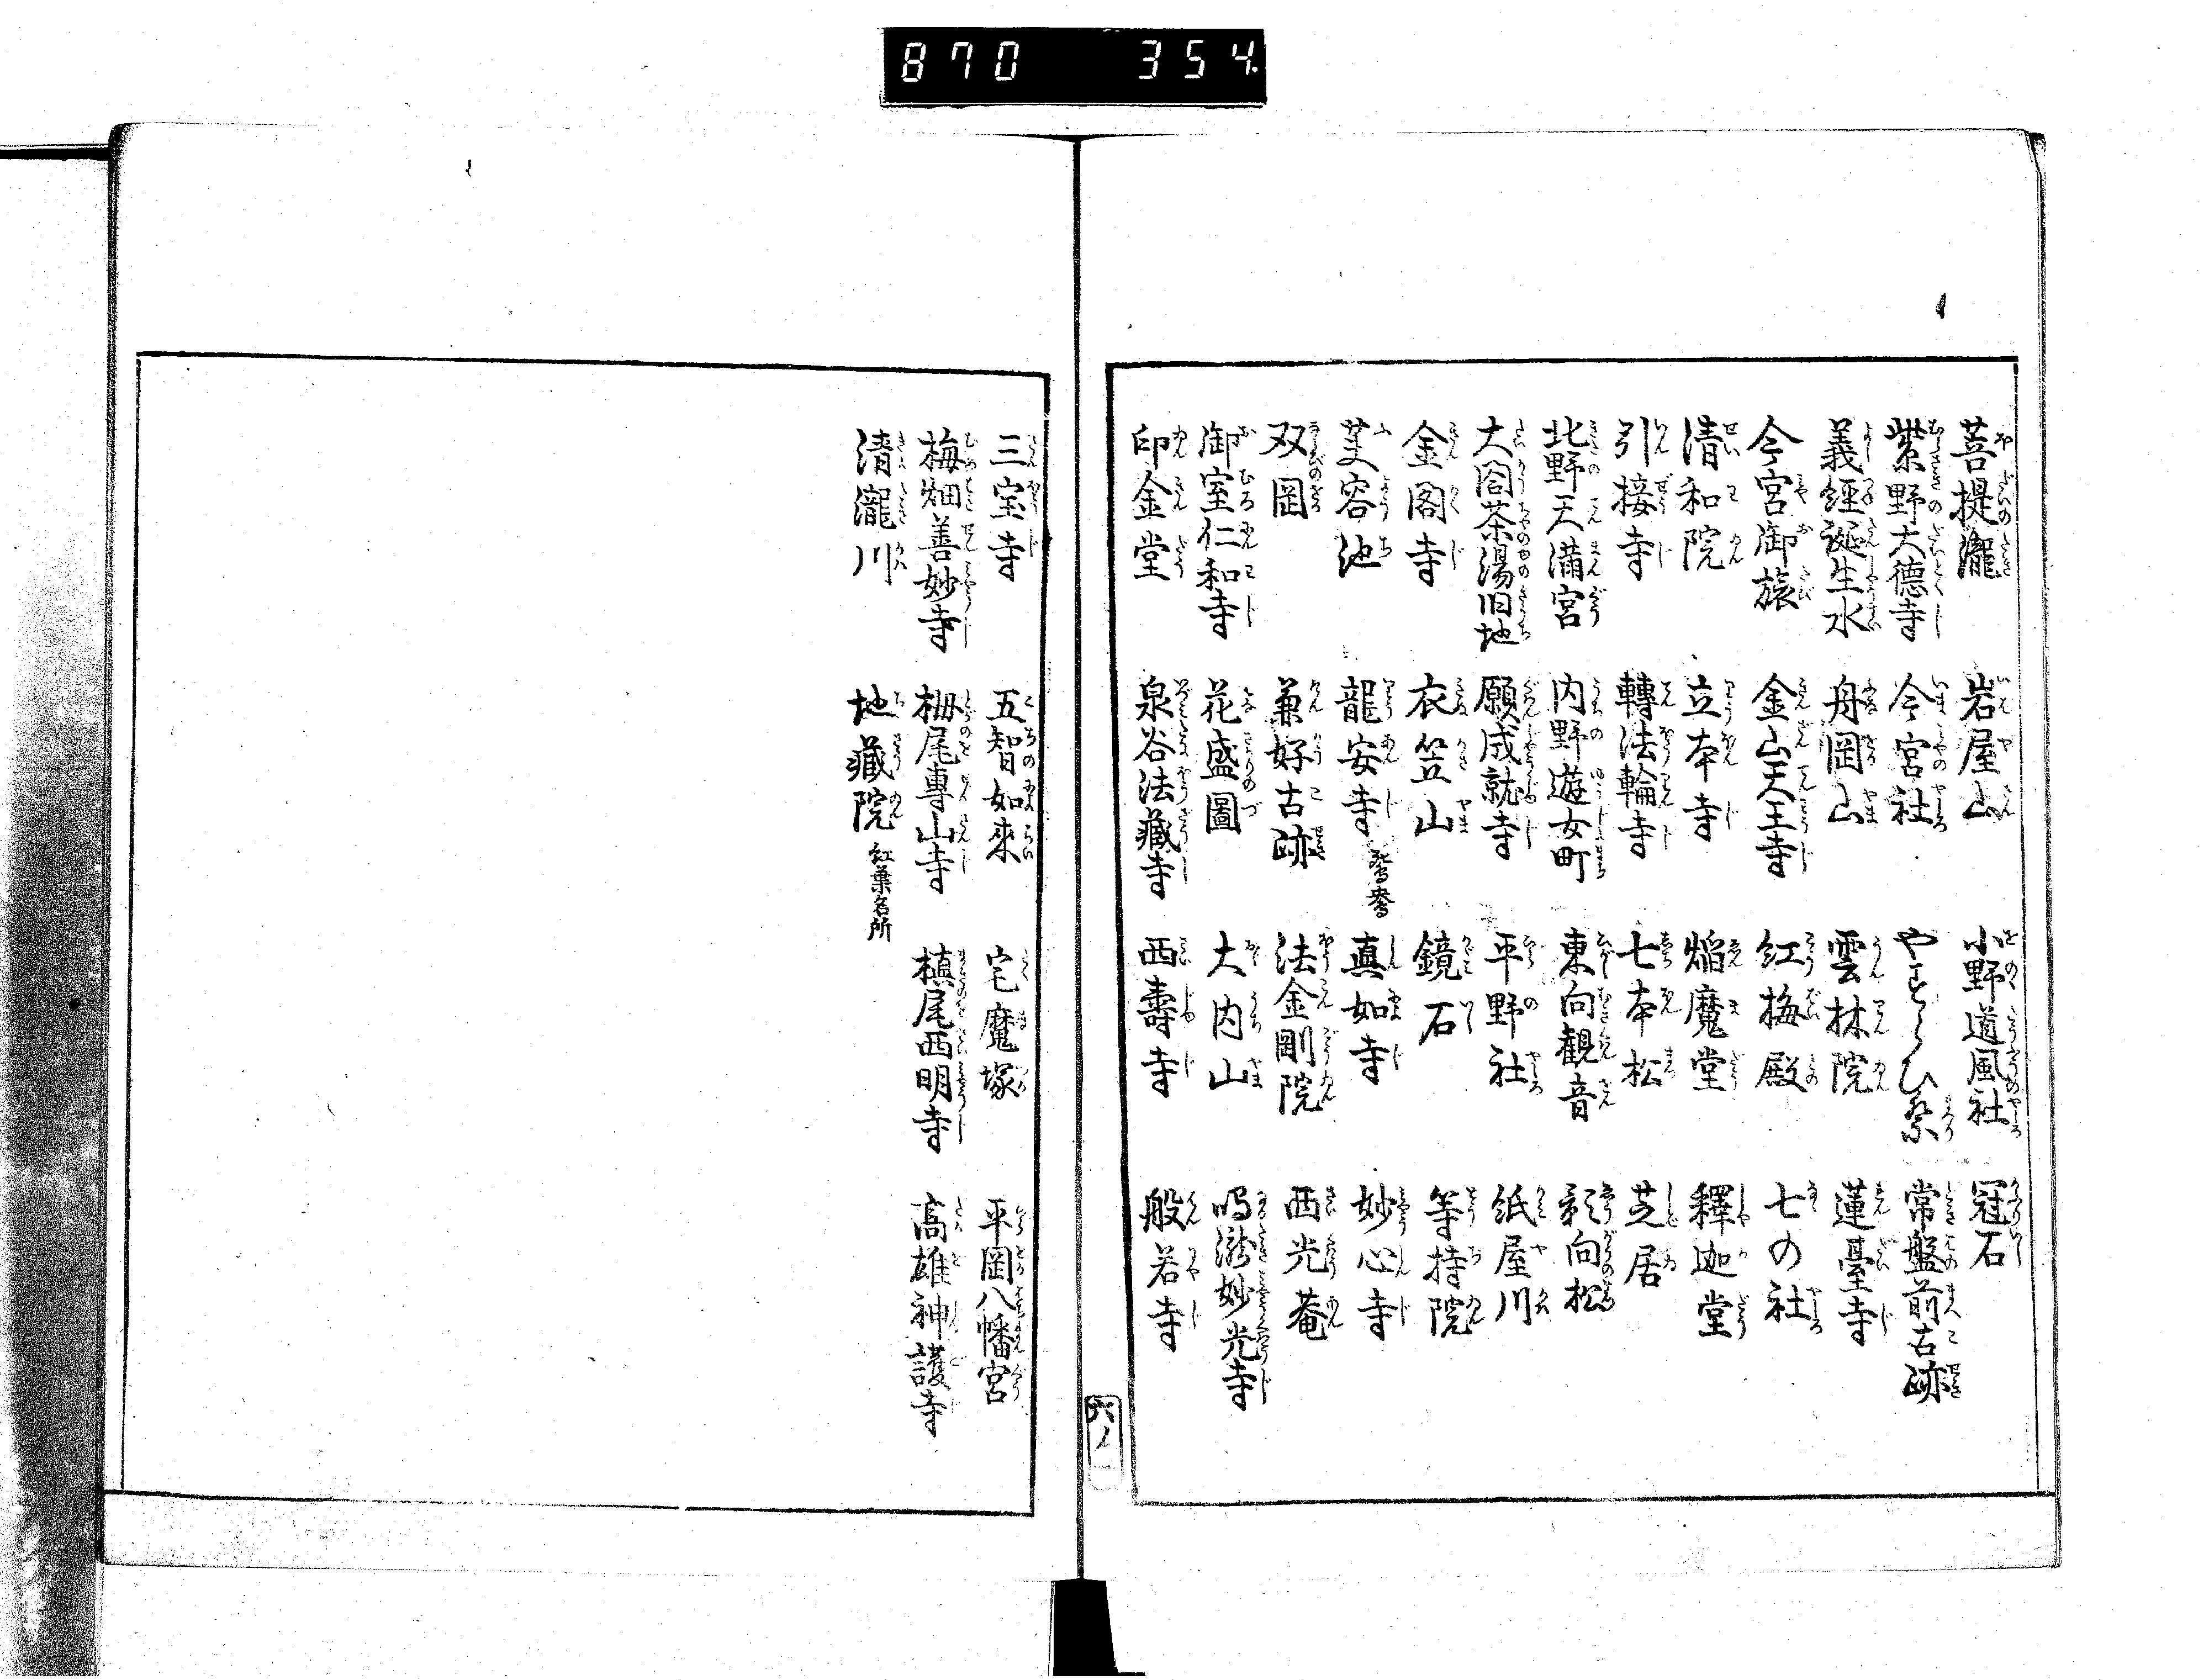 870 354
菩提瀧 岩屋山 小野道風社 冠石
紫野大徳寺 今宮社 やすらひ祭 常盤前古跡
義經誕生水 舟岡山 雲林院 蓮臺寺
今宮御旅 金山天王寺 紅梅殿 七の社
清和院 立本寺 焔魔堂 釋迦堂
引接寺 轉法輪寺 七本松 芝居
北野天満宮 内野遊女町 東向観音 影向松
大閤茶湯旧地 願成就寺 平野社 紙屋川
金閣寺 衣笠山 鏡石 等持院
芙容池 龍安寺 鴛鴦 真如寺 妙心寺
双岡 兼好古跡 法金剛院 西光菴
御室仁和寺 花盛圖 大内山 鳴瀧妙光寺
印金堂 泉谷法藏寺 西壽寺 般若寺
六ノ一
三宝寺 五智如來 宅魔塚 平岡八幡宮
梅畑善妙寺 栂尾專山寺 槙尾西明寺 高雄神護寺
清瀧川 地藏院 紅葉名所